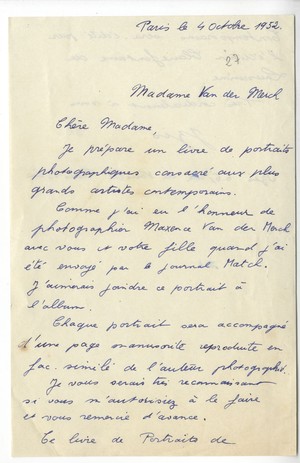 Paris le 4 Octobre 1952.
27
Madame Van der Merch
Chère Madame,
Je prépare un livre de portraits
photographiques consacré aux plus
grands artistes contemporains.
Comme j'ai eu l'honneur de
photographier Maxence Van der Merch
avec vous et votre fille quand j'ai
été envoyé par le journal Match.
J'aimerais joindre ce portrait à
l'album.
Chaque portrait sera accompagné
d'une page manuscrite reproduite en
fac. similé de l'auteur photographié.
Je vous serais très reconnaissant
si vous m'autorisiez à le faire
et vous remercie d'avance.
Ce livre de Portraits de